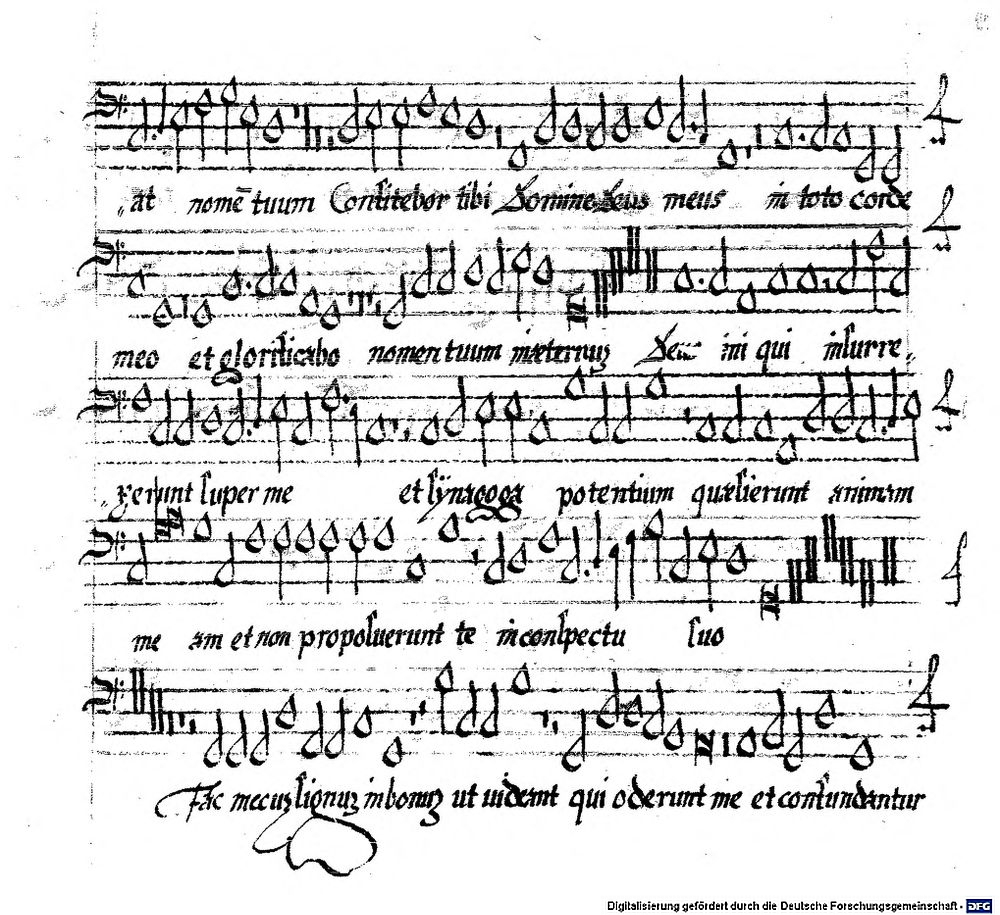 at nomē tuum Confitebor tibi Domine deus meus in toto corde
meo et glorificabo nomen tuum in æternuʒ Deus ini qui insurre,
xerunt super me et synagoga potentium quæsierunt animam
me am et non proposuerunt te in conspectu suo
Fac mecuʒ signuʒ in bonuʒ ut uideant qui oderunt me et confundantur
Digitalisierung gefördert durch die Deutsche Forschungsgemeinschaft - DFG